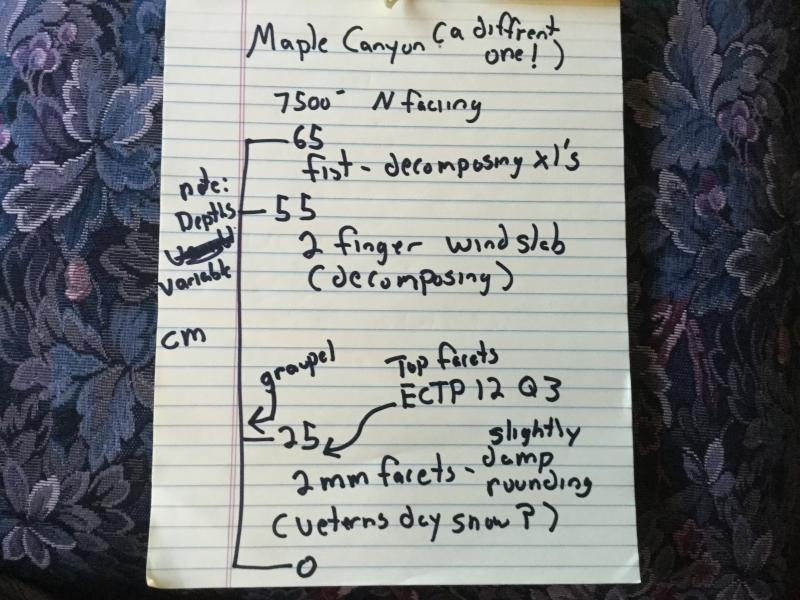 Maple Canyon (a diffrent
one!)
7500' N faciing
65
fist - decomposing xl's
note:
Depths
variable
55
2 finger wind slab
(decomposing)
cm
graupel
Top facets
ECTP 12 Q3
25
2mm facets - slightly
damp
rounding
(Veterns day snow?)
0